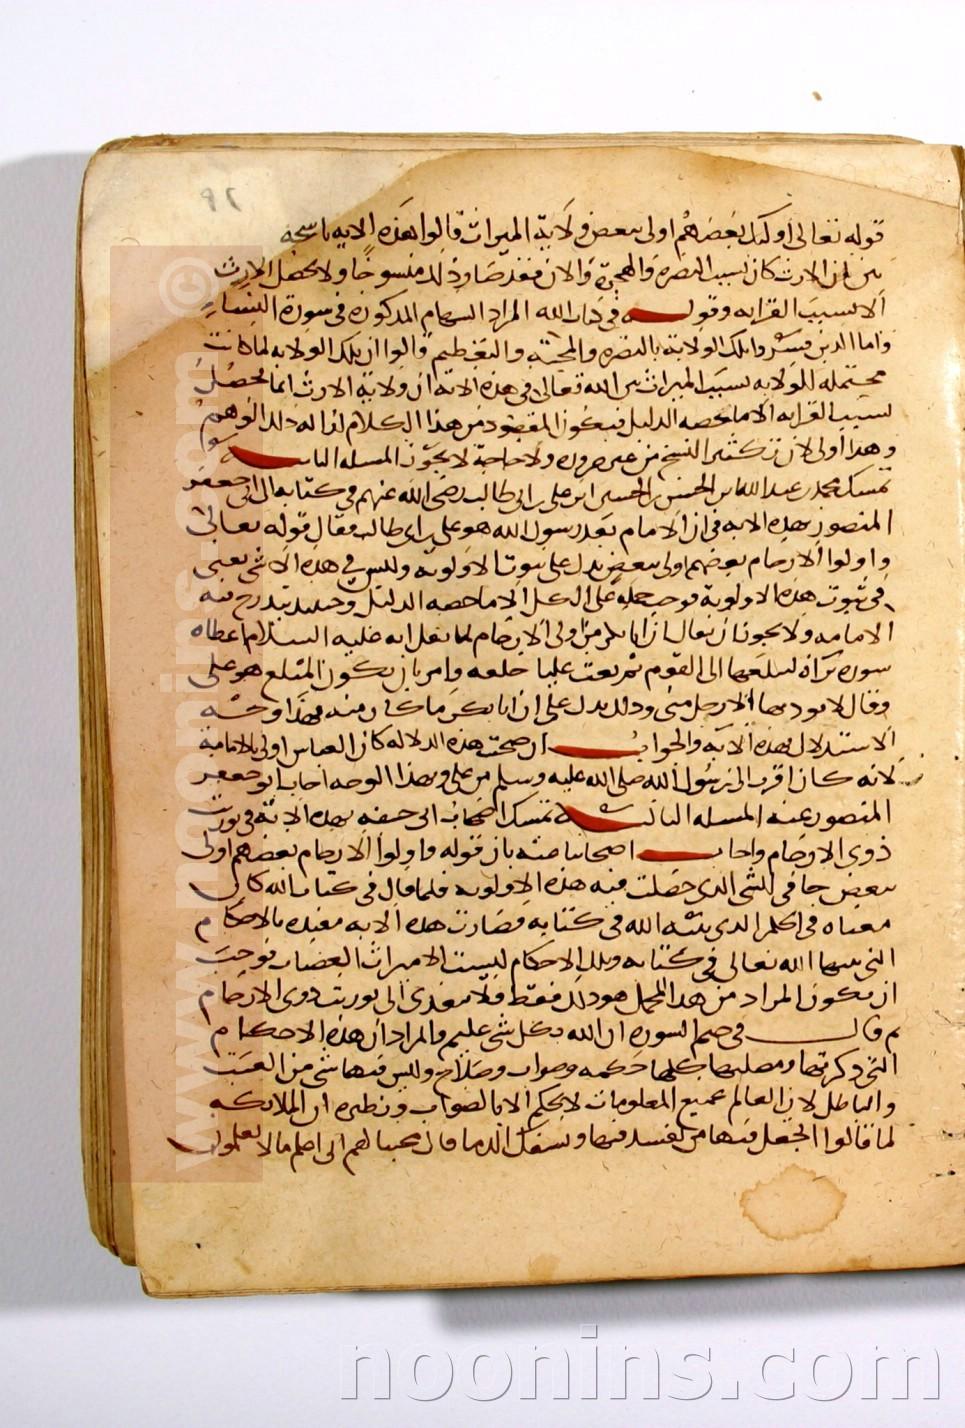 ٢٩
قوله تعالى اولئك بعضهم اولى ببعض ولاية الميراث قالوا هذه الايه ناسخة
بين ان الارث كان بسبب النصرة والهجرة والان فقد صار ذلك منسوخا ولا يحصل الارث
الا بسبب القرابه وقوله في كتاب الله المراد السهام المذكورة في سورة النساء
واما الذين فسروا تلك الولاية بالنصره والمحبة والتعظيم قالوا ان تلك الولايه لما كانت
محتمله للولايه بسبب الميراث بين الله تعالى في هذه الاية ان ولاية الارث انما تحصل
بسبب القرابه الا ما خصه الدليل فيكون المقصود من هذا الكلام ازاله ذلك الوهم
وهذا اولى لان تكثير النسخ من غير ضروره ولا حاجة لا يجوز المسله الثانية
تمسك محمد بن عبد الله بن الحسن بن الحسين ابن علي بن ابي طالب رضي الله عنهم في كتابه الى ابي جعفر
المنصور بهذه الايه في ان الامام بعد رسول الله هو علي بن ابي طالب فقال قوله تعالى
واولوا الارحام بعضهم اولى ببعض يدل على ثبوت الاولويه وليس في هذه الاية شي يعين
في ثبوت هذه الاولوية فوجب حمله على الكل الا ما خصه الدليل وحينئذ يندرج فيه
الامامه ولا يجوز ان يقال ان ابا بكر من اولي الارحام لما نقل انه عليه السلام اعطاه
سورة براة ليبلغها الى القوم ثم بعث عليا خلفه وامر بان يكون المبلغ هو علي
وقال لا يوديها الا رجل مني وذلك يدل على ان ابا بكر ما كان منه فهذا وجه
الاستدلال بهذه الاية والجواب ان صحت هذه الدلاله كان العباس اولى بالامامة
لانه كان اقرب الى رسول الله صلى الله عليه وسلم من علي وبهذا الوجه اجاب ابو جعفر
المنصور عنه المسله الثالثة تمسك اصحاب ابي حنيفه بهذه الاية في توريث
ذوي الارحام واجاب اصحابنا عنه بان قوله واولوا الارحام بعضهم اولى
ببعض مجمل في الشي الذي حصلت فيه هذه الاولويه فلما قال في كتاب الله كان
معناه في الحكم الذي بينه الله في كتابه فصارت هذه الايه مقيده بالاحكام
التي بينها الله تعالى في كتابه وتلك الاحكام ليست الا ميراث العصبات فوجب
ان يكون المراد من هذا المجمل هو ذلك فقط فلا يتعدى الى توريث ذوي الارحام
ثم قال في ختم السوره ان الله بكل شي عليم والمراد ان هذه الاحكام
التي ذكرتها وفصلتها كلها حكمه وصواب وصلاح وليس فيها شي من العبث
والباطل لان العالم بجميع المعلومات لا يحكم الا بالصواب ونظيره ان الملايكه
لما قالوا اتجعل فيها من يفسد فيها ويسفك الدما قال مجيبا لهم اني اعلم ما لا تعلمون
www.noonins.com ©
noonins.com